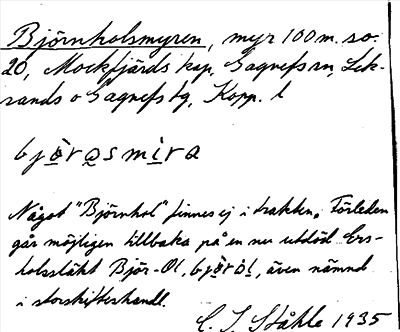 Björnholsmyren, myr 100 m. so.
20, Mockfjärds kap, Gagnefs sn, Lek-
sands o Gagnefs tg, Kopp. l
björosmira
Något "Björnhol" finnes ej i trakten. Förleden
går möjligen tillbaka på en nu utdöd Ers-
holssläkt Björ-Ol, björòl, även nämnd
i storskifteshandl.
C. I. Ståhle 1935